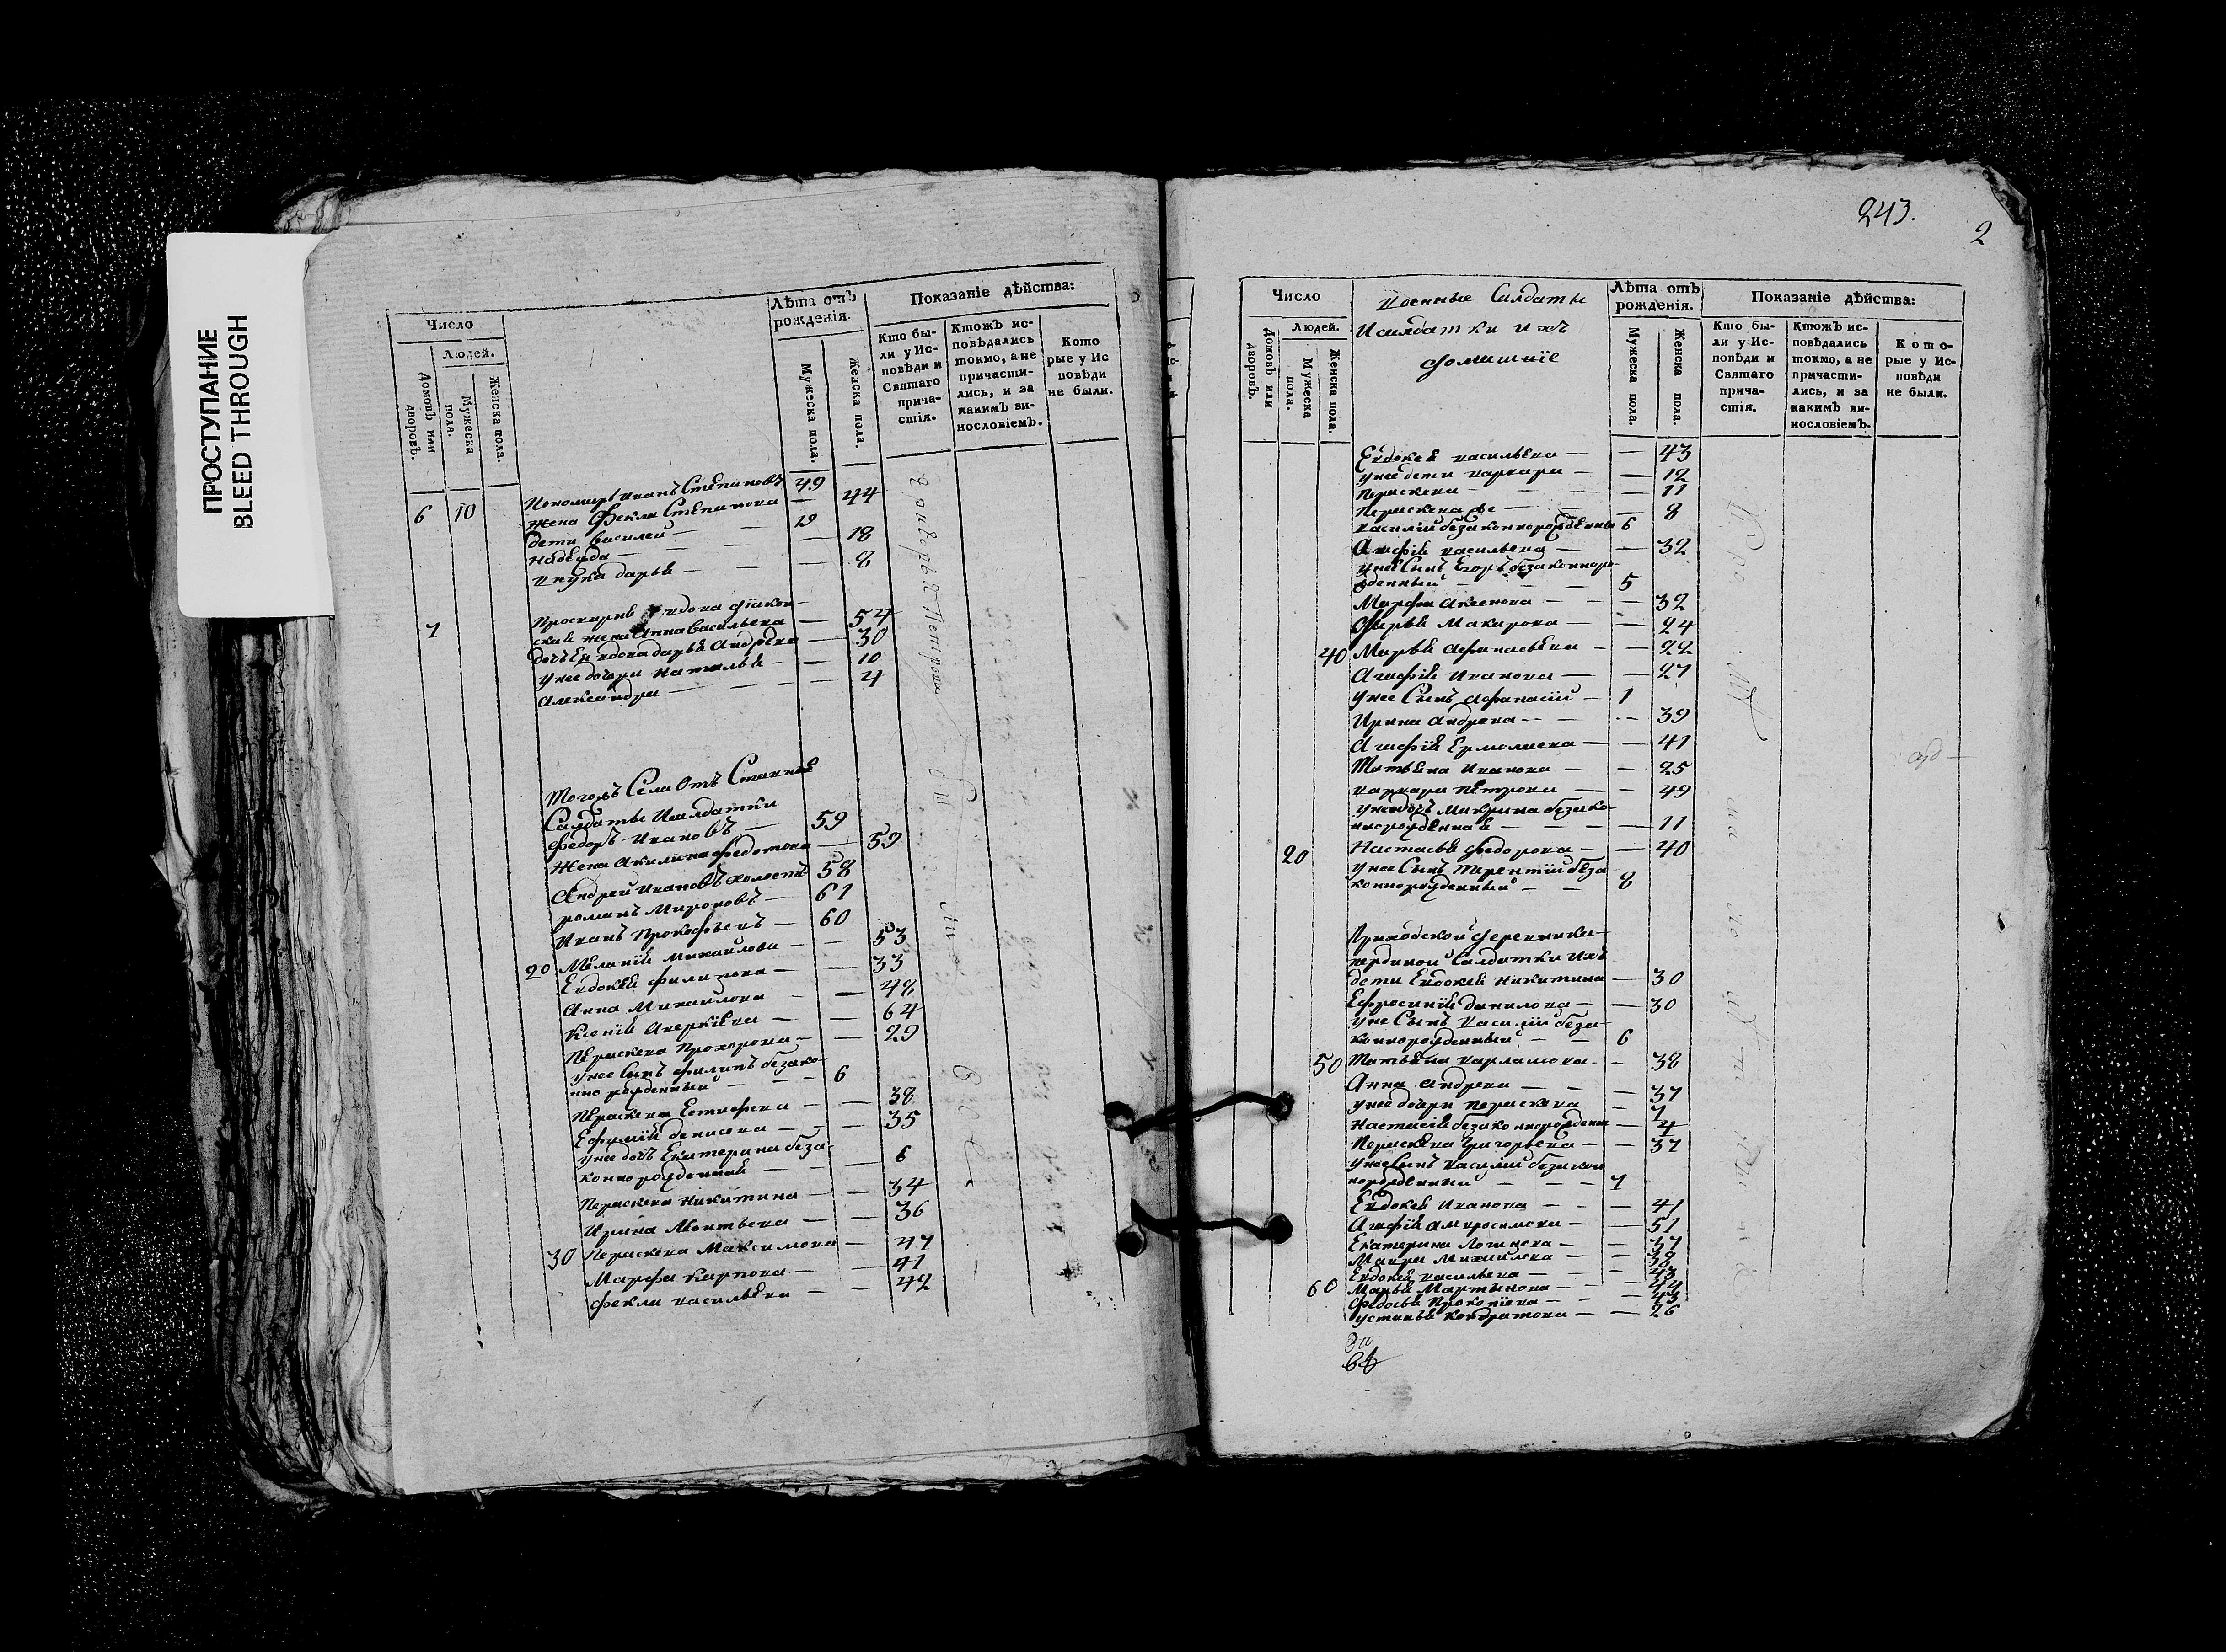 ПРОСТУПАНИЕ
BLEED THROUGH
Число
Людей.
Домовъ или дворовъ.
Мужеска пола.
Женска пола.
Лѣта отъ рожденія.
Мужеска пола.
Женска пола.
Показаніе дѣйства:
Кто были у Исповѣди и Святаго причастія.
Ктожъ исповѣдались токмо, а не причастились, и за какимъ винословіемъ.
Которые у Исповѣди не были.
6 10 Пономарь Иванъ Степановъ 49
жена Фекла Степанова — 44
дети Василей — 19
Надежда — — 18
внука дарья — — 8
7 Проскирня вдова диакон-
ская жена Анна Васильева — 54
дочь Ея вдова дарья Андрѣева — 30
унее дочери Наталья — — 10
Александра — — 4
Тогожъ Села Отъ Ставные
Салдаты Исалдатки
Федоръ Ивановъ — 59
Жена Акилина Федотова — 59
Андрей Ивановъ холостъ 58
романъ Мироновъ — 61
Иванъ Прокофьевъ — 60
20 Мелания Михайлова — — 53
Евдокея Филипова — — 33
Анна Михайлова — — 48
Ксения Аверкиева — — 64
Пераскева Прохорова — — 29
унее Сынъ Филипъ безако-
нно рожденный — — 6
Пераскева Естифева — — 38
Ефимия денисова — — 35
унее дочь Екатерина беза-
коннорожденная — — 6
Пераскева Никитина — — 34
Ирина Леонтьева — — 36
30 Пераскева Максимова — 47
Марфа Карпова — — 41
Фекла васильева — — 42
243.
2
Число
Людей.
Домовъ или дворовъ.
Мужеска пола.
Женска пола.
военные Салдаты
Исалдатки ихъ
домашние
Лѣта отъ рожденія.
Мужеска пола.
Женска пола.
Показаніе дѣйства:
Кто были у Исповѣди и Святаго причастія.
Ктожъ исповѣдались токмо, а не причастились, и за какимъ винословіемъ.
Которые у Исповѣди не были.
Евдокея васильева — — 43
унее дети варвара — — 12
Пераскева — — 11
Пераскева же — — 8
василий безаконнорожденны 6
Агафия васильева — — 32
унее Сынъ Егоръ безаконноро-
жденный — — 5
Марфа Аксенова — — 32
дарья Макарова — — 24
40 Марья Афанасьева — — 22
Агафия Иванова — — 27
унее Сынъ Афанасий — 1
Ирина Андреева — — 39
Агафия Ермолаева — — 41
Татьяна Иванова — — 25
варвара Петрова — — 49
унее дочь Макрина безако-
ннорожденная — — 11
20 Настасья Федорова — — 40
унее Сынъ Терентий беза
коннорожденный — — 8
Салдатки Ихъ
дети Евдокея Никитина — 30
Ефросиния данилова — — 30
унее Сынъ василий беза-
коннорожденный — — 6
50 Татьяна варламова — — 38
Анна Андреева — — 37
унее дочери Пераскева — 7
Настасия безаконнорожденн — 4
Пераскева Григорьева — — 37
унее Сынъ василий безакон
норожденный — — 7
Евдокея Иванова — — 41
Агафия Амвросимова — — 51
Екатерина Логинова — — 37
Мавра Михайлова — — 38
Евдокея васильева — — 43
60 Марья Мартынова — — 44
Федосья Прокопиева — — 43
устинья Кондратова — — 26